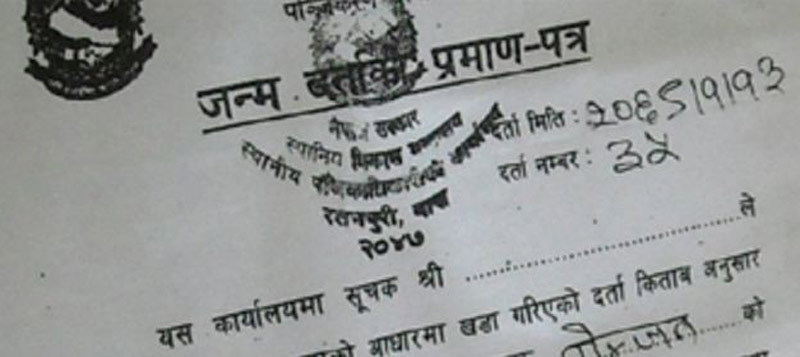 पञ्जिकरण
जन्म दर्ताको प्रमाण-पत्र
नेपाल सरकार
स्थानिय विकास मन्त्रालय
स्थानीय पञ्जिकाधिकारीको कार्यालय
रतनपुरी, बारा
२०४७
दर्ता मिति :
दर्ता नम्बर : ३५
यस कार्यालयमा सूचक श्री ........................ ले
आधारमा खडा गरिएको दर्ता किताब अनुसार
को